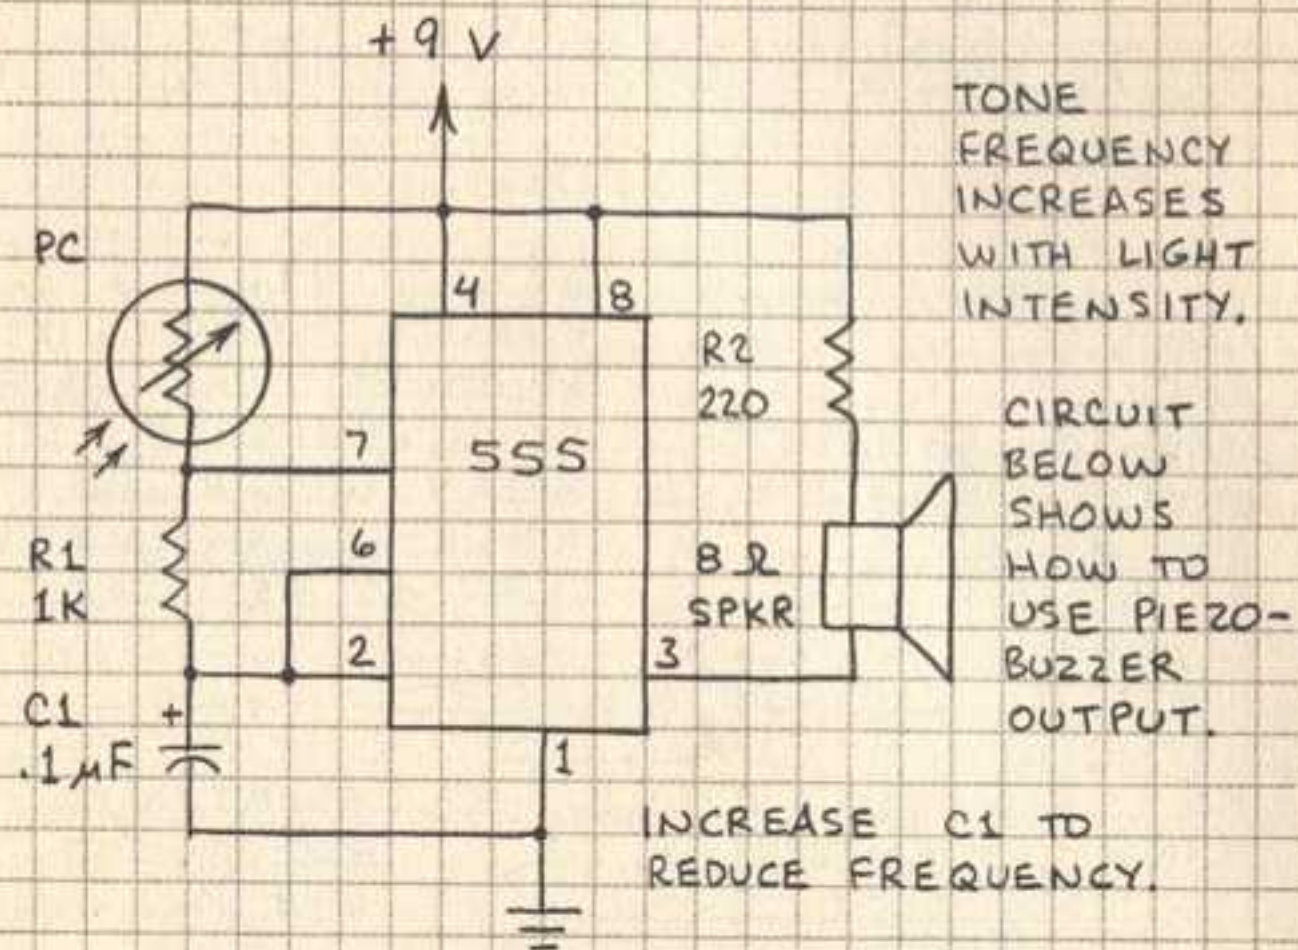 +9 V
TONE
FREQUENCY
INCREASES
WITH LIGHT
INTENSITY.
PC
4
8
R2
220
7
555
CIRCUIT
BELOW
SHOWS
HOW TO
USE PIEZO-
BUZZER
OUTPUT.
R1
1K
6
8 Ω
SPKR
2
3
C1
+
.1 μF
1
INCREASE C1 TO
REDUCE FREQUENCY.